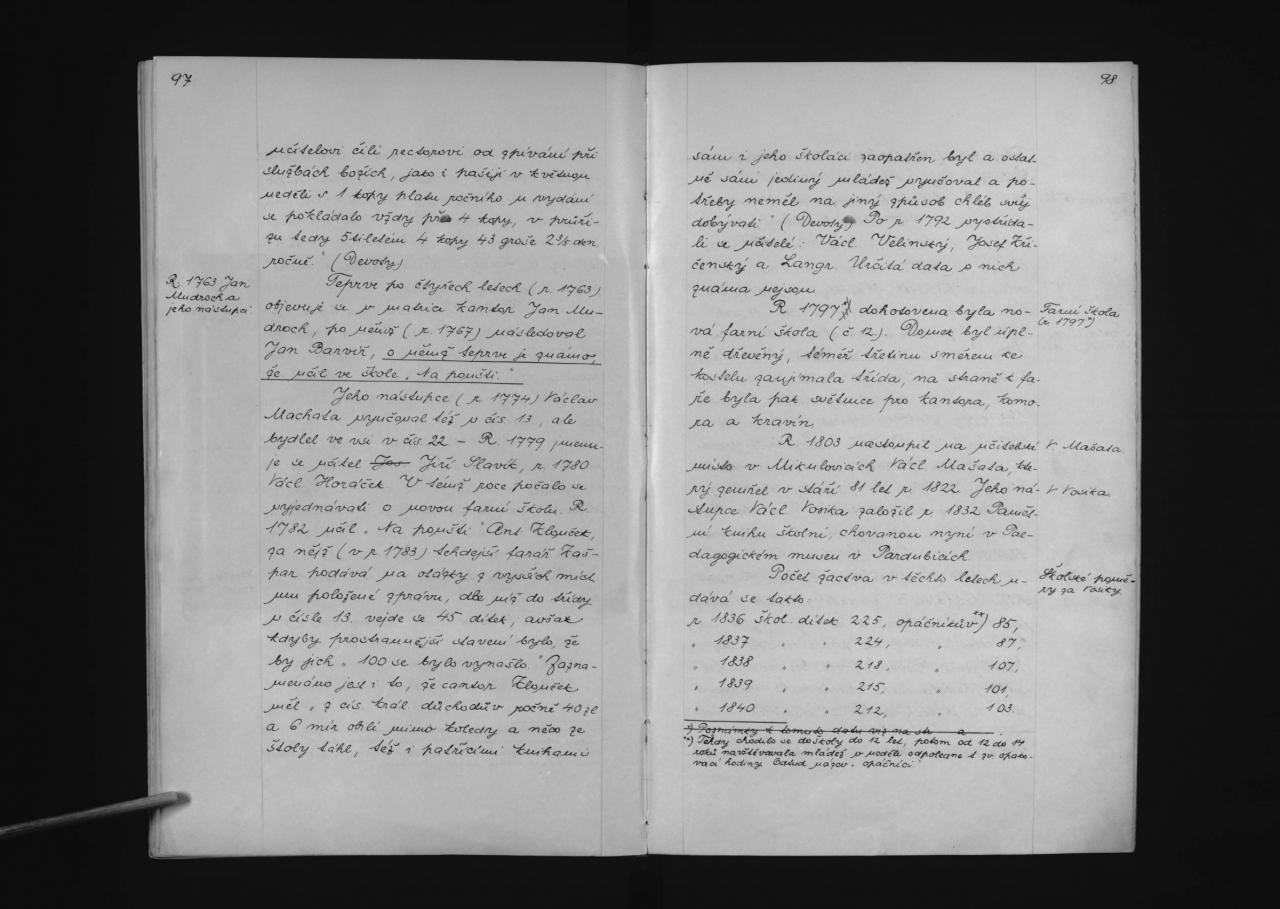 97
učitelovi čili rectorovi od zpívání při
službách božích, jako i pašijí v květnou
neděli s 1 kopy platu ročního u vydání
se pokládalo vždy po 4 kopy, v průře-
zu tedy 5tiletém 4 kopy 43 groše 2 3/5 den.
ročně." (Devoty)
R. 1763 Jan
Mudroch a
jeho nástupci
Teprve po čtyřech letech (r. 1763)
objevuje se v matrice kantor Jan Mu-
droch, po němž (r. 1767) následoval
Jan Barvíř, o němž teprve je známo,
že učil ve škole „Na poušti."
Jeho nástupce (r. 1774) Václav
Machata vyučoval též v čís. 13., ale
bydlel ve vsi v čís. 22 – R. 1779 jmenu-
je se učitel Jos Jiří Slavík, r. 1780
Václ. Horáček. V témž roce počalo se
vyjednávati o novou farní školu. R.
1782 učil „Na poušti" Ant. Klouček,
za nějž (v r. 1783) tehdejší farář Kaš-
par podává na otázky z vyšších míst
mu položené zprávu, dle níž do třídy
v čísle 13. vejde se 45 dítek, avšak
kdyby prostrannější stavení bylo, že
by jich „100 se bylo vynašlo." Zazna-
menáno jest i to, že cantor Klouček
měl „z cís. král. důchodův ročně 40 zl
a 6 mír obilí mimo koledy a něco ze
štoly táhl, též i patřícími knihami
98
sám i jeho školáci zaopatřen byl a ostat-
ně sám jediný mládež vyučoval a po-
třeby neměl na jiný způsob chléb svůj
dobývati." (Devoty) Po r. 1792 vystřída-
li se učitelé: Václ. Velinský, Josef Kři-
čenský a Langr. Určitá data o nich
známa nejsou.
R. 1797*) dohotovena byla no-
vá farní škola (č. 12.). Domek byl úpl-
ně dřevěný, téměř třetinu směrem ke
kostelu zaujímala třída, na straně k fa-
ře byla pak světnice pro kantora, komo-
ra a kravín.
Farní škola
(r. 1797*)
R. 1803 nastoupil na učitelské
místo v Mikulovicích Václ. Mašata, kte-
rý zemřel v stáří 81 let r. 1822. Jeho ná-
stupce Václ. Vosika založil r. 1832 Pamět-
ní knihu školní, chovanou nyní v Pae-
dagogickém museu v Pardubicích.
V. Mašata.
V. Vosika.
Počet žactva v těchto letech u-
dává se takto:
Školské pomě-
ry za Vosiky.
r. 1836 škol. dítek 225, opáčníkův**) 85,
„ 1837 „ „ 224, „ 87,
„ 1838 „ „ 218, „ 107,
„ 1839 „ „ 215, „ 101,
„ 1840 „ „ 212, „ 103.
*) Poznámky k tomuto datu viz na str. a .
**) Tehdy chodilo se do školy do 12 let, potom od 12 do 14
roků navštěvovala mládež v neděli odpoledne t. zv. opako-
vací hodiny. Odtud název „opáčníci".